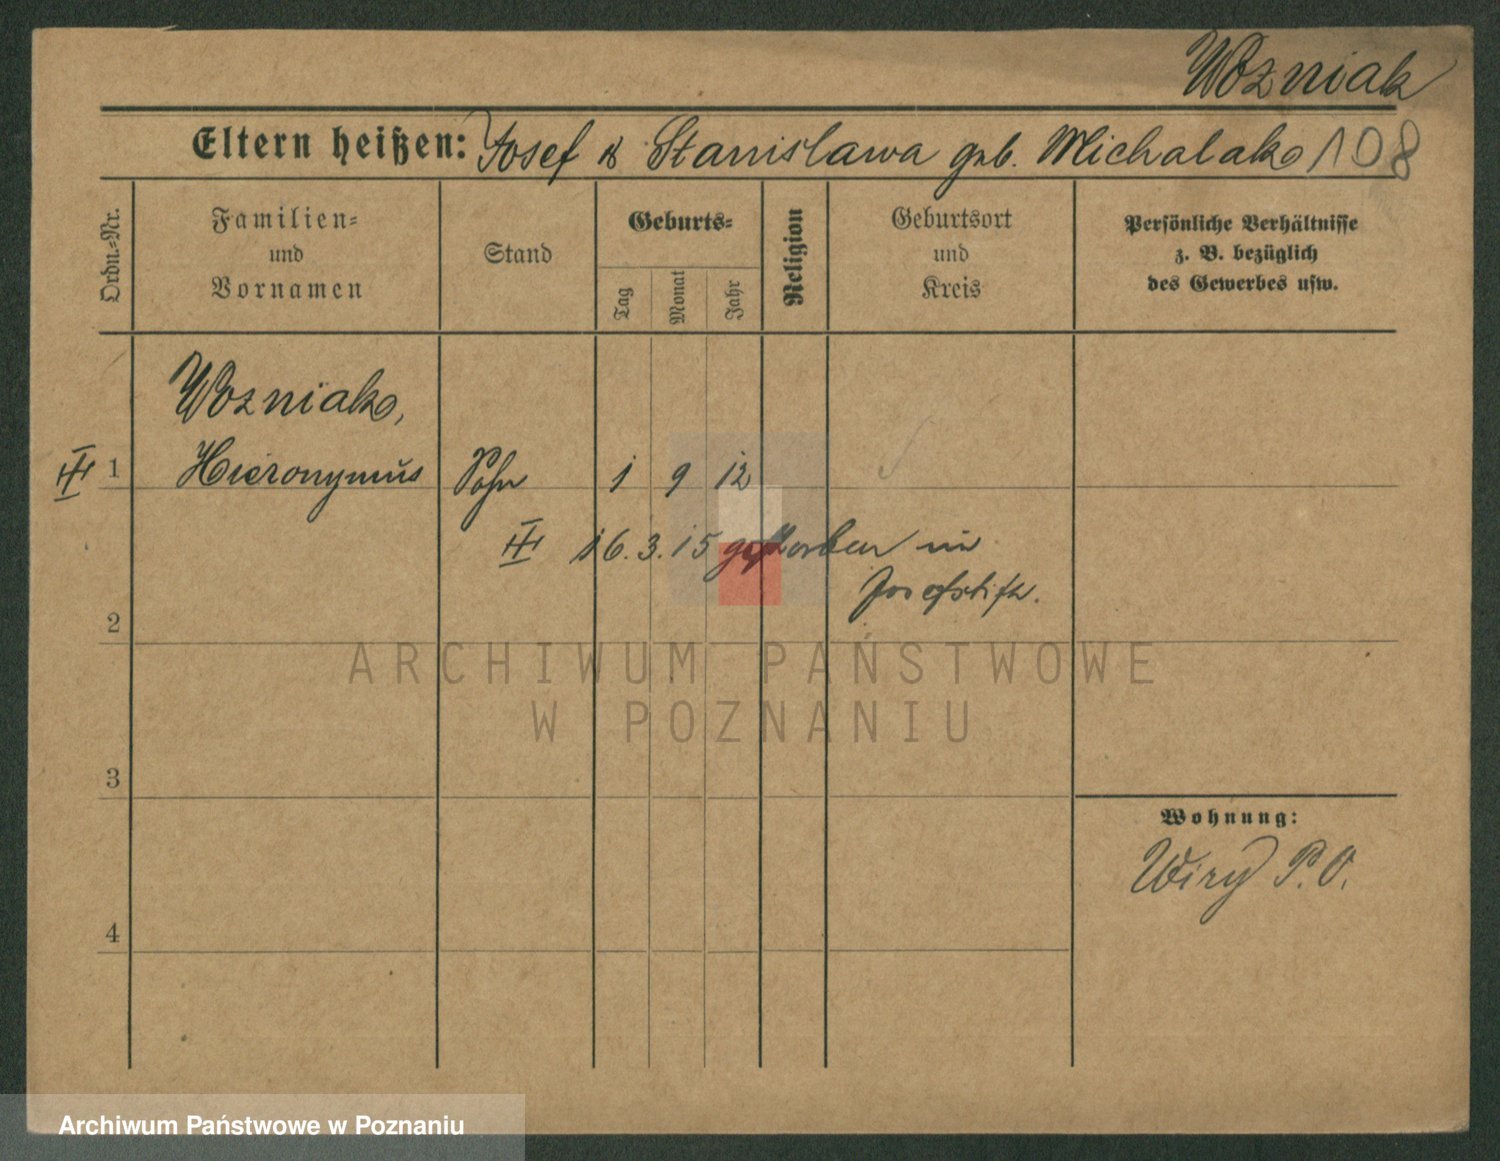 Wozniak
Eltern heißen: Josef & Stanislawa geb. Michalak 108
Ordn.=Nr.
Familien=
und
Vornamen
Stand
Geburts=
Tag
Monat
Jahr
Religion
Geburtsort
und
Kreis
Persönliche Verhältnisse
z. B. bezüglich
des Gewerbes usw.
Wozniak,
1 Hieronymus Sohn 1 9 12
16. 3. 15 gestorben im
Josefstift.
2
ARCHIWUM PAŃSTWOWE
W POZNANIU
3
Wohnung:
Wiry P. O.
4
Archiwum Państwowe w Poznaniu